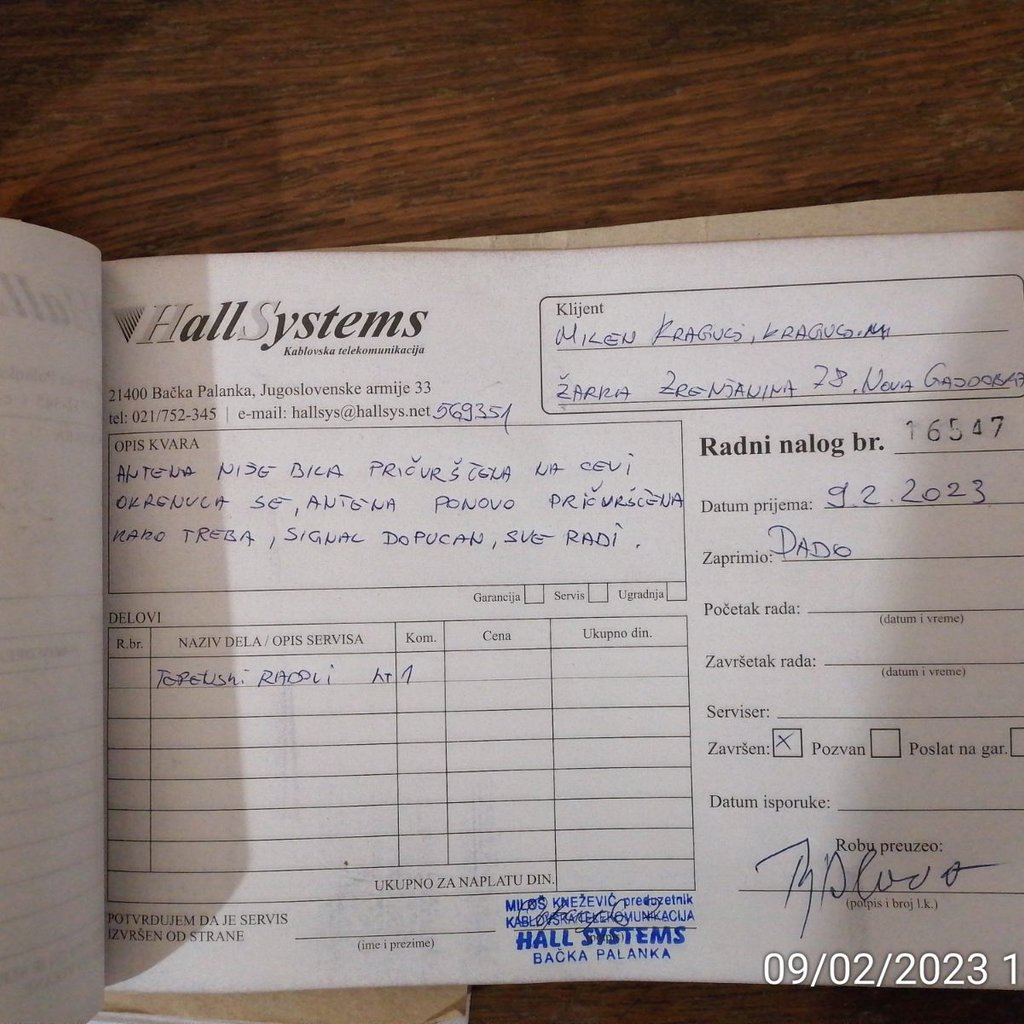 Hall Systems
Kablovska telekomunikacija
21400 Bačka Palanka, Jugoslovenske armije 33
tel: 021/752-345 | e-mail: hallsys@hallsys.net 569351
Klijent
MILEN KRAGULJ, KRAGULJ.MI
ŽARKA ZRENJANINA 78, NOVA GAJDOBRA
OPIS KVARA
ANTENA NIJE BILA PRIČVRŠĆENA NA CEVI
OKRENULA SE, ANTENA PONOVO PRIČVRŠĆENA
KAKO TREBA, SIGNAL DOPUCAN, SVE RADI.
Garancija Servis Ugradnja
Radni nalog br. 16547
Datum prijema: 9.2.2023
Zaprimio: DADO
Početak rada:
(datum i vreme)
Završetak rada:
(datum i vreme)
Serviser:
Završen: X Pozvan Poslat na gar.
Datum isporuke:
Robu preuzeo:
(potpis i broj l.k.)
DELOVI
R.br. NAZIV DELA / OPIS SERVISA Kom. Cena Ukupno din.
TERENSKI RADOVI 1
UKUPNO ZA NAPLATU DIN.
POTVRDUJEM DA JE SERVIS
IZVRŠEN OD STRANE
(ime i prezime)
MILOŠ KNEŽEVIĆ preduzetnik
KABLOVSKA TELEKOMUNIKACIJA
HALL SYSTEMS
BAČKA PALANKA
09/02/2023 1